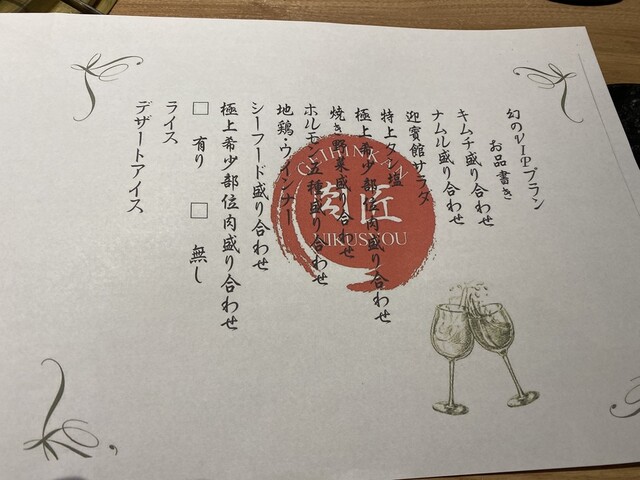 幻のVIPプラン
お品書き
キムチ盛り合わせ
ナムル盛り合わせ
迎賓館サラダ
特上タン塩
極上希少部位肉盛り合わせ
焼き野菜盛り合わせ
ホルモン五種盛り合わせ
地鶏・ウインナー
シーフード盛り合わせ
極上希少部位肉盛り合わせ
□ 有り □ 無し
ライス
デザートアイス
肉匠
NIKUSYOU